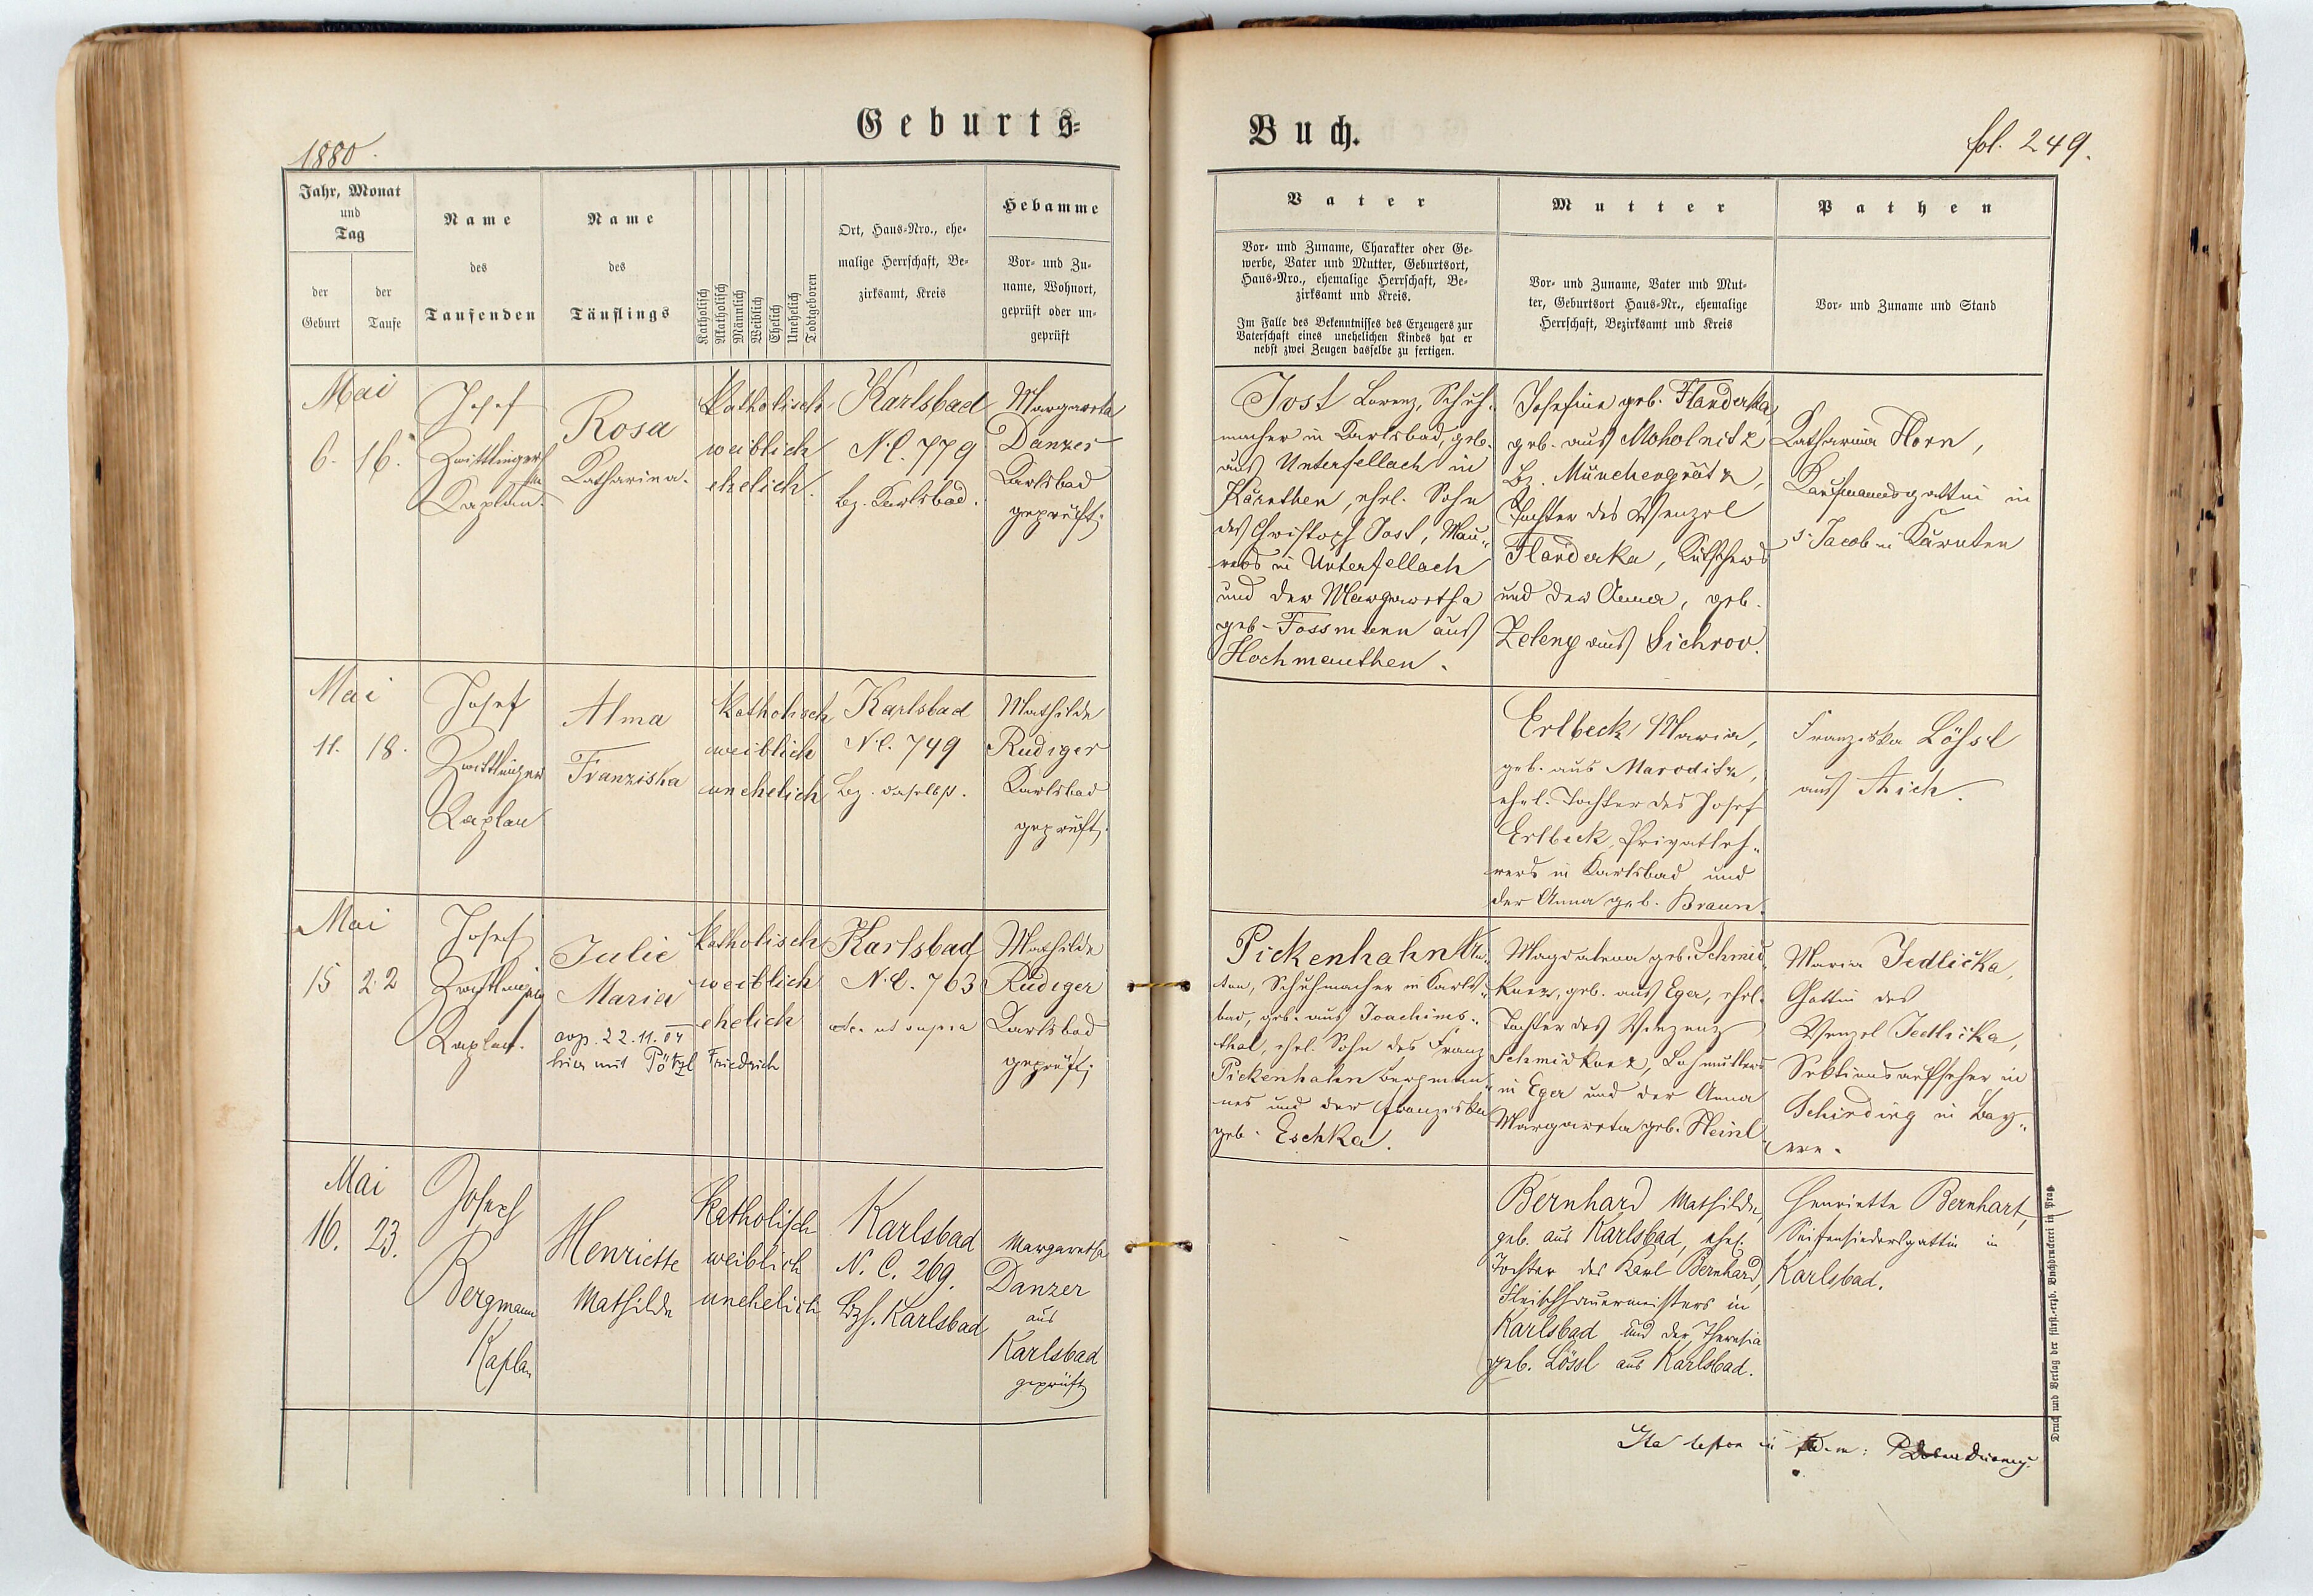 Geburts=
1880.
Jahr, Monat
und
Tag
der
Geburt
der
Taufe
Name
des
Taufenden
Name
des
Täuflings
Katholisch
Akatholisch
Männlich
Weiblich
Ehelich
Unehelich
Todtgeboren
Ort, Haus=Nro., ehe=
malige Herrschaft, Be=
zirksamt, Kreis
Hebamme
Vor= und Zu=
name, Wohnort,
geprüft oder un=
geprüft
Mai
6. 16.
Josef
Zwittlinger
Kaplan.
Rosa
Katharina.
Katholisch
weiblich
ehelich.
Karlsbad
N.C. 779
Bz. Karlsbad.
Margareta
Danzer
Karlsbad
geprüft
Mai
11. 18.
Josef
Zwittlinger
Kaplan
Alma
Franziska
Katholisch
weiblich
unehelich
Karlsbad
N.C. 749
Bz. daselbst.
Mathilde
Rudiger
Karlsbad
geprüft
Mai
15 22
Josef
Zwittlinger
Kaplan.
Julie
Maria
cop. 22.11.04
hier mit Pötzl Friedrich
katholisch
weiblich
ehelich
Karlsbad
N.C. 763
ut supra
Mathilde
Rudiger
Karlsbad
geprüft
Mai
16. 23.
Josef
Bergmann
Kaplan
Henriette
Mathilde
Katholisch
weiblich
unehelich
Karlsbad
N. C. 269.
Bzh. Karlsbad
Margaretha
Danzer
aus
Karlsbad
geprüft
Buch.
fol. 249.
Vater
Vor= und Zuname, Charakter oder Ge=
werbe, Vater und Mutter, Geburtsort,
Haus=Nro., ehemalige Herrschaft, Be=
zirksamt und Kreis.
Im Falle des Bekenntnisses des Erzeugers zur
Vaterschaft eines unehelichen Kindes hat er
nebst zwei Zeugen dasselbe zu fertigen.
Mutter
Vor= und Zuname, Vater und Mut=
ter, Geburtsort Haus=Nr., ehemalige
Herrschaft, Bezirksamt und Kreis
Pathen
Vor= und Zuname und Stand
Jost Lorenz, Schuh=
macher in Karlsbad, geb.
aus Unterfellach in
Kärnthen, ehel. Sohn
des Christoph Jost, Mau=
rers in Unterfellach
und der Margaretha
geb. Fossmann aus
Hochmauthen.
Josefine geb. Flanderka,
geb. aus Moholnitz
Bz. Münchengrätz,
Tochter des Wenzel
Flanderka, Kutschers
und der Anna, geb.
Zeleny aus Sichrov.
Katharina Horn,
Kaufmannsgattin in
St. Jacob in Kärnten
Erlbeck Maria,
geb. aus Maroditz,
ehel. Tochter des Josef
Erlbeck, Privatleh=
rers in Karlsbad und
der Anna geb. Braun.
Franziska Lößl
aus Aich.
Pickenhahn An=
ton, Schuhmacher in Karls=
bad, geb. aus Joachims=
thal, ehel. Sohn des Franz
Pickenhahn Bergman=
nes und der Franziska
geb. Eschka.
Magdalena geb. Schmid=
kunz, geb. aus Eger, ehel.
Tochter des Vinzenz
Schmidkunz, Lohnkutschers
in Eger und der Anna
Margareta geb. Heinl
Maria Jedlička,
Gattin des
Wenzel Jedlička,
Sektionsaufseher in
Schirding in Bay=
ern.
Bernhard Mathilde,
geb. aus Karlsbad, ehel.
Tochter des Karl Bernhard,
Fleischhauermeisters in
Karlsbad und der Theresia
geb. Lössl aus Karlsbad.
Henriette Bernhart,
Seifensiedersgattin in
Karlsbad.
Druck und Verlag der fürst.=erzb. Buchdruckerei in Prag.